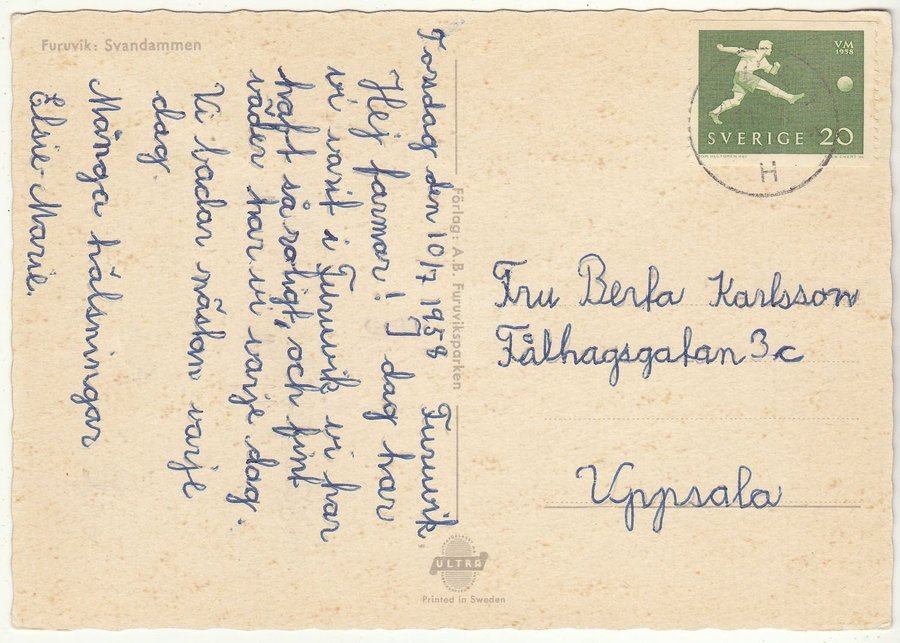 Furuvik: Svandammen
Torsdag den 10/7 1958 Furuvik.
Hej farmor! I dag har
vi varit i Furuvik vi har
haft så roligt, och fint
väder har vi varje dag.
Vi badar nästan varje
dag.
Många hälsningar
Elsie-Marie.
Förlag: A.B. Furuviksparken
VM
1958
SVERIGE 20
H
Fru Berta Karlsson
Tålhagsgatan 3c
Uppsala
ULTRA
Printed in Sweden